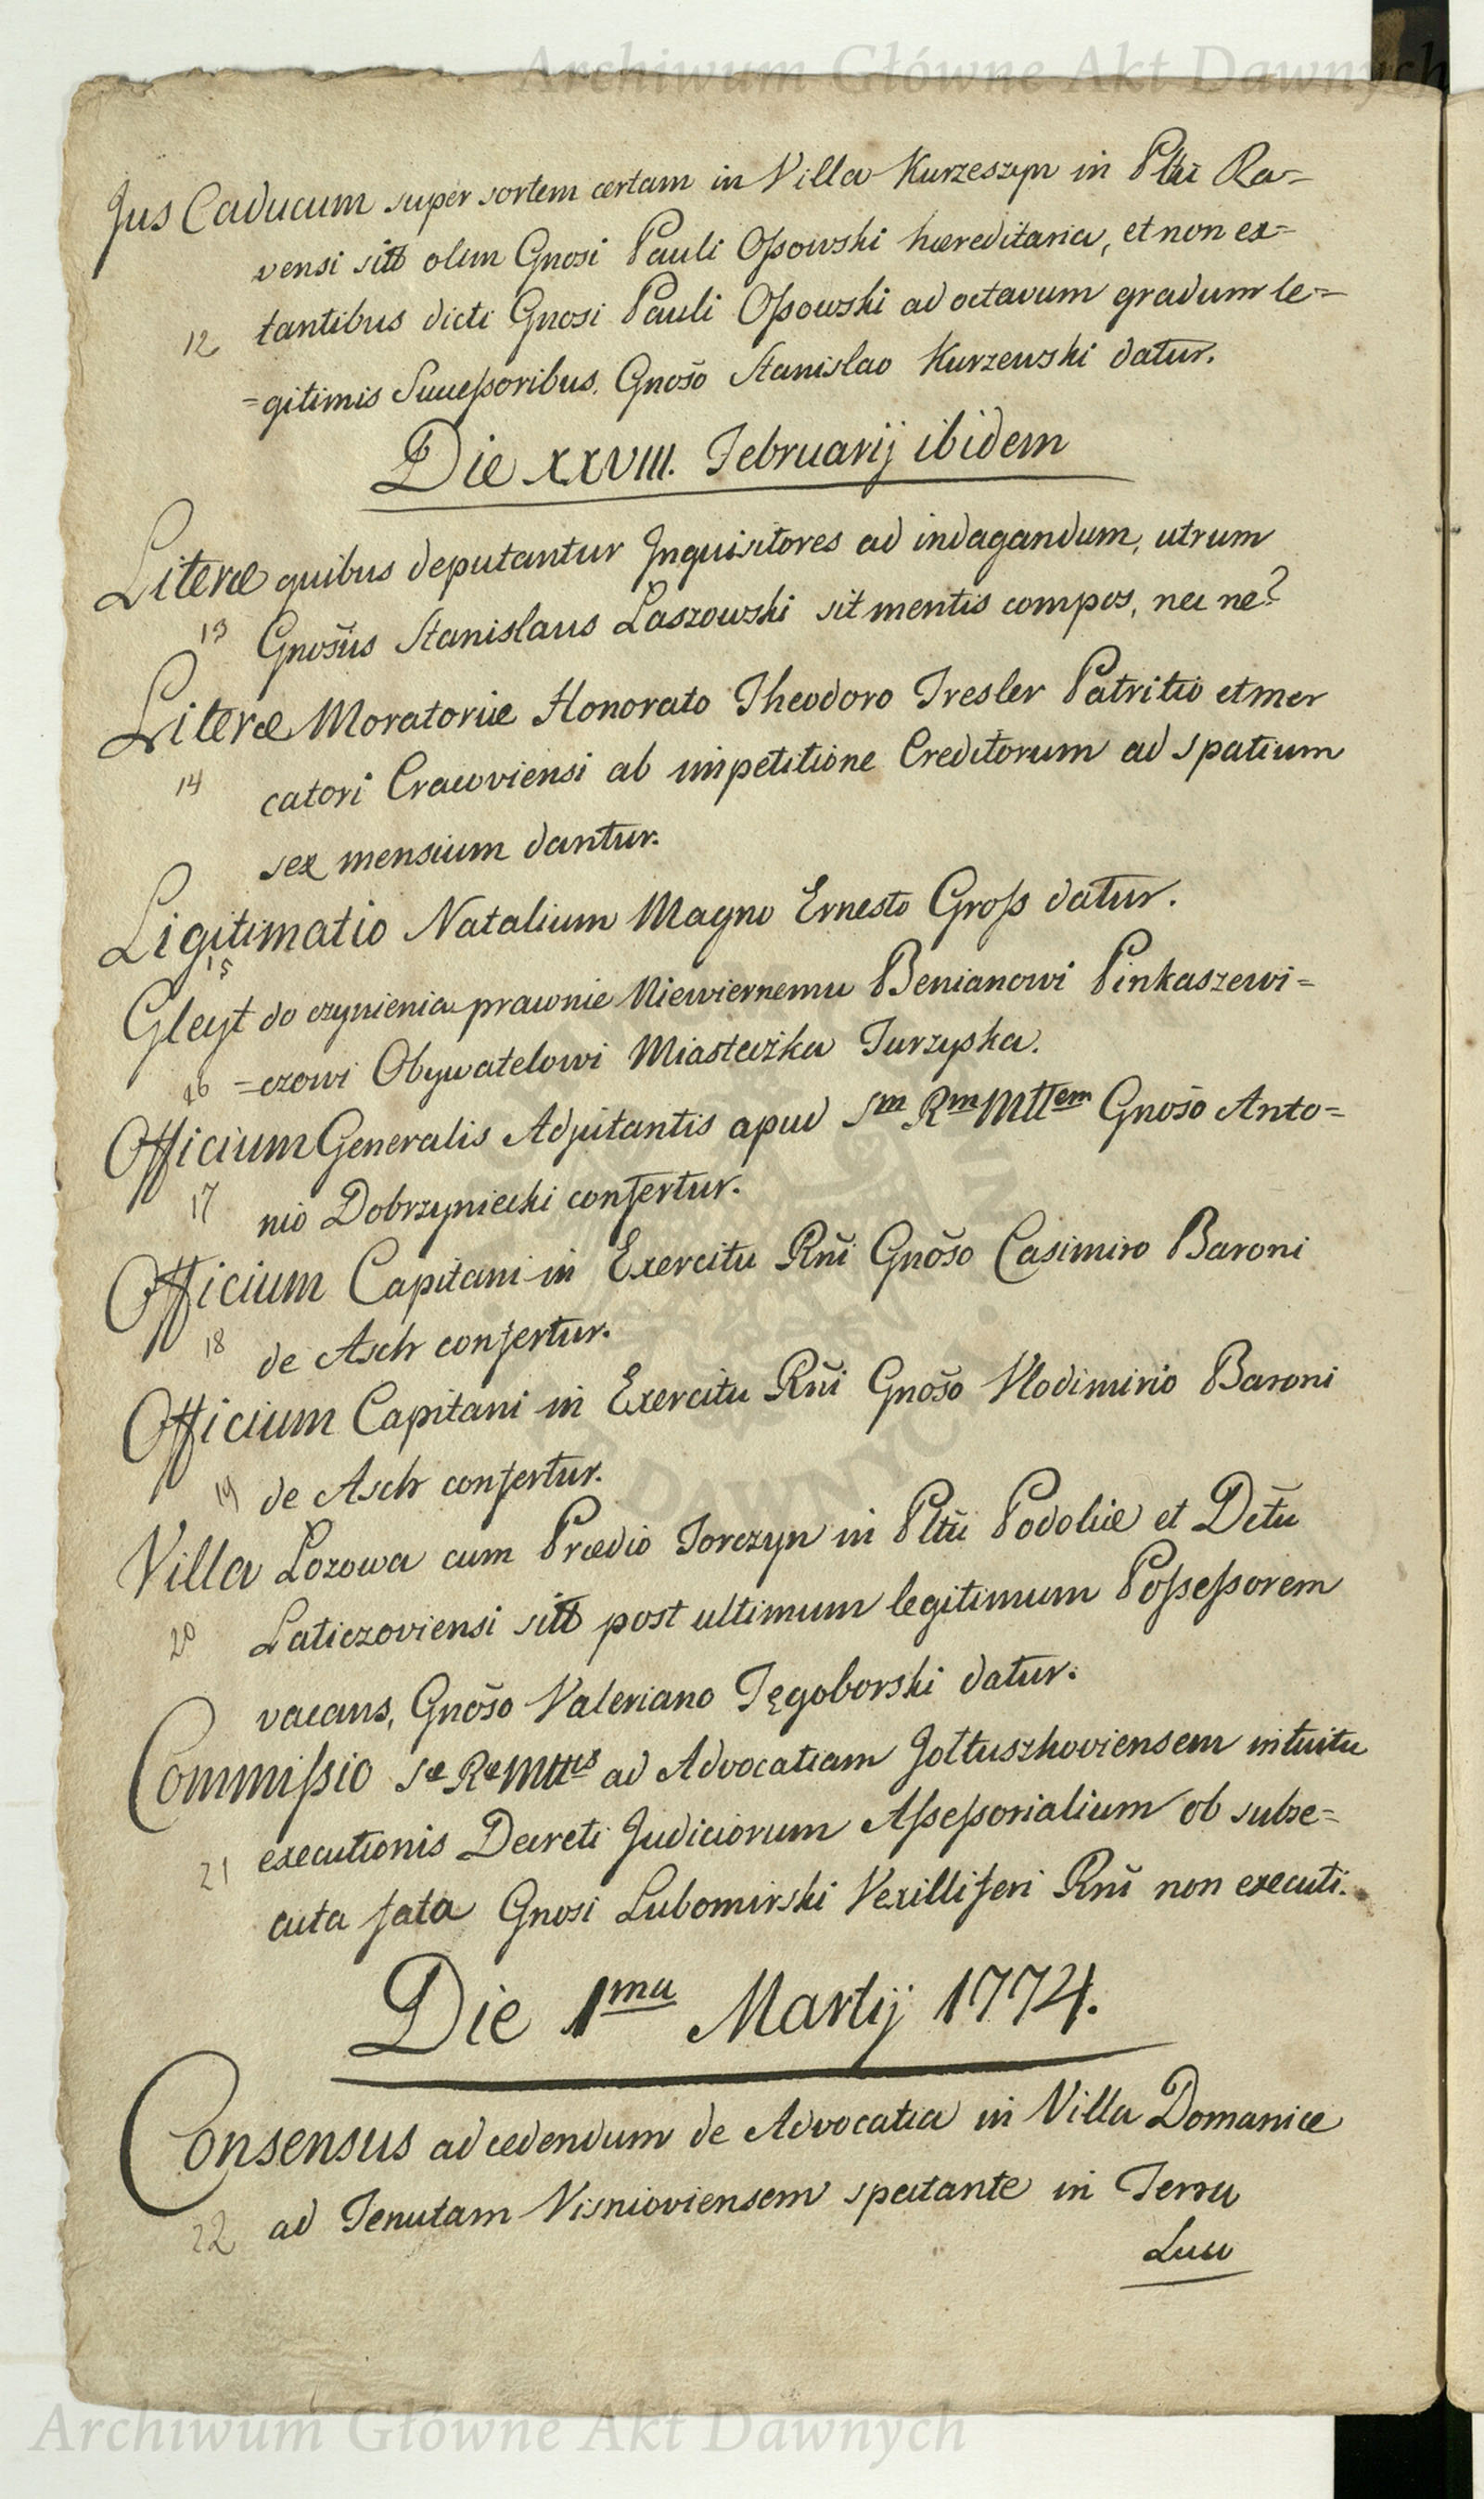 Archiwum Główne Akt Dawnych
Jus Caducum super sortem certam in Villa Kurzeszyn in Pltū Ra=
vensi sitt olim Gnosi Pauli Ossowski hæreditaria, et non ex=
12 tantibus dicti Gnosi Pauli Ossowski ad octavum gradum le=
=gitimis Successoribus. Gnōso Stanislao Kurzewski datur.
Die XXVIII. Februarij ibidem
Literæ quibus deputantur Inquisitores ad indagandum, utrum
13 Gnosūs Stanislaus Laszowski sit mentis compos, nec ne?
Literæ Moratoriæ Honorato Theodoro Tresler Patritio et mer
14 catori Cracoviensi ab impetitione Creditorum ad spatium
sex mensium dantur.
Ligitimatio Natalium Magno Ernesto Gross datur.
15
Gleyt do czynienia prawnie Niewiernemu Benianowi Pinkaszewi=
16 =czowi Obywatelowi Miasteczka Turzyska.
Officium Generalis Adjutantis apud Sm Rm Mttem Gnōso Anto=
17 nio Dobrzyniecki confertur.
Officium Capitani in Exercitu Rnī Gnōso Casimiro Baroni
18 de Asch confertur.
Officium Capitani in Exercitu Rnī Gnōso Vlodimirio Baroni
19 de Asch confertur.
Villa Lozowa cum Prædio Torczyn in Pltū Podoliæ et Dtū
20 Laticzoviensi sitt post ultimum legitimum Possessorem
vacans, Gnōso Valeriano Tęgoborski datur.
Commissio Sæ Ræ Mttis ad Advocatiam Jołtuszkoviensem intuitu
executionis Decreti Judiciorum Assessorialium ob subse=
21 cuta fata Gnosi Lubomirski Vexilliferi Rnī non executi.
Die 1ma Martij 1774.
Consensus ad cedendum de Advocatia in Villa Domanice
22 ad Tenutam Visnioviensem spectante in Terra
Luu
Archiwum Główne Akt Dawnych